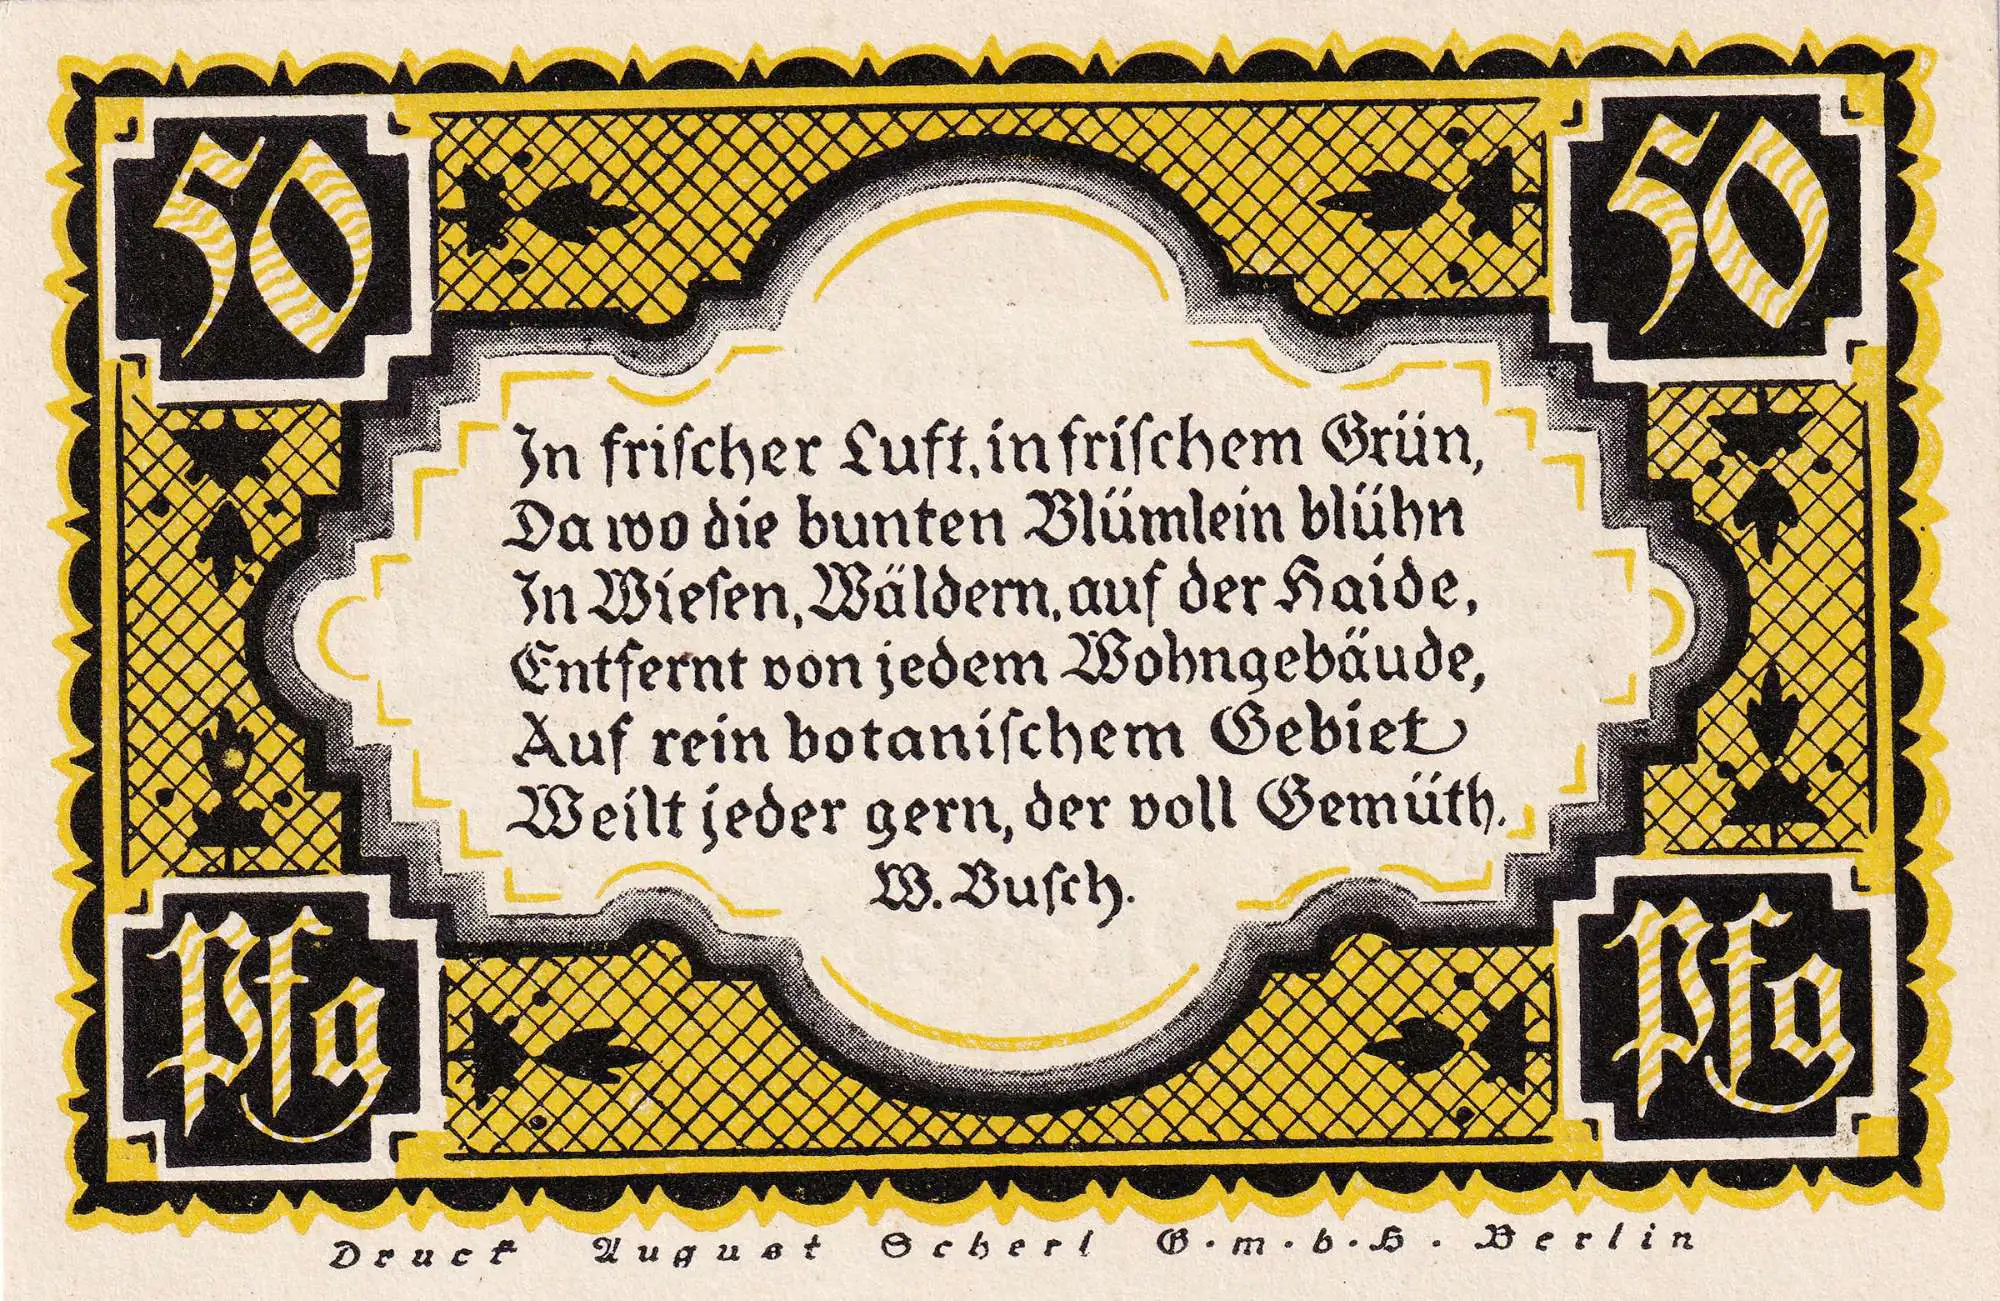 50
50
In frischer Luft, in frischem Grün,
Da wo die bunten Blümlein blühn
In Wiesen, Wäldern, auf der Haide,
Entfernt von jedem Wohngebäude,
Auf rein botanischem Gebiet
Weilt jeder gern, der voll Gemüth.
W. Busch.
Pfg
Pfg
Druck August Scherl G.m.b.H. Berlin